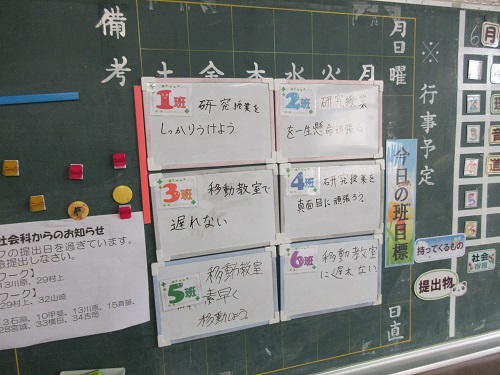 備考
土 金 木 水 火 月
月日曜
※行事予定
日直
6月
1班
研究授業を
しっかりうけよう
2班
研究授業
を一生懸命頑張ろう
3班
移動教室で
遅れない
4班
研究授業を
真面目に頑張ろう
5班
移動教室
素早く
移動しよう
6班
移動教室
に遅れない
今日の班目標
持ってくるもの
提出物
社会
社会科からのお知らせ
の提出日を過ぎています。
急提出しなさい。
ワーク】
13川原、29村上
ワーク】
29村上、32山崎
3石淵、10甲斐、13川原、15斉藤、
28宮城、33横田、34吉岡